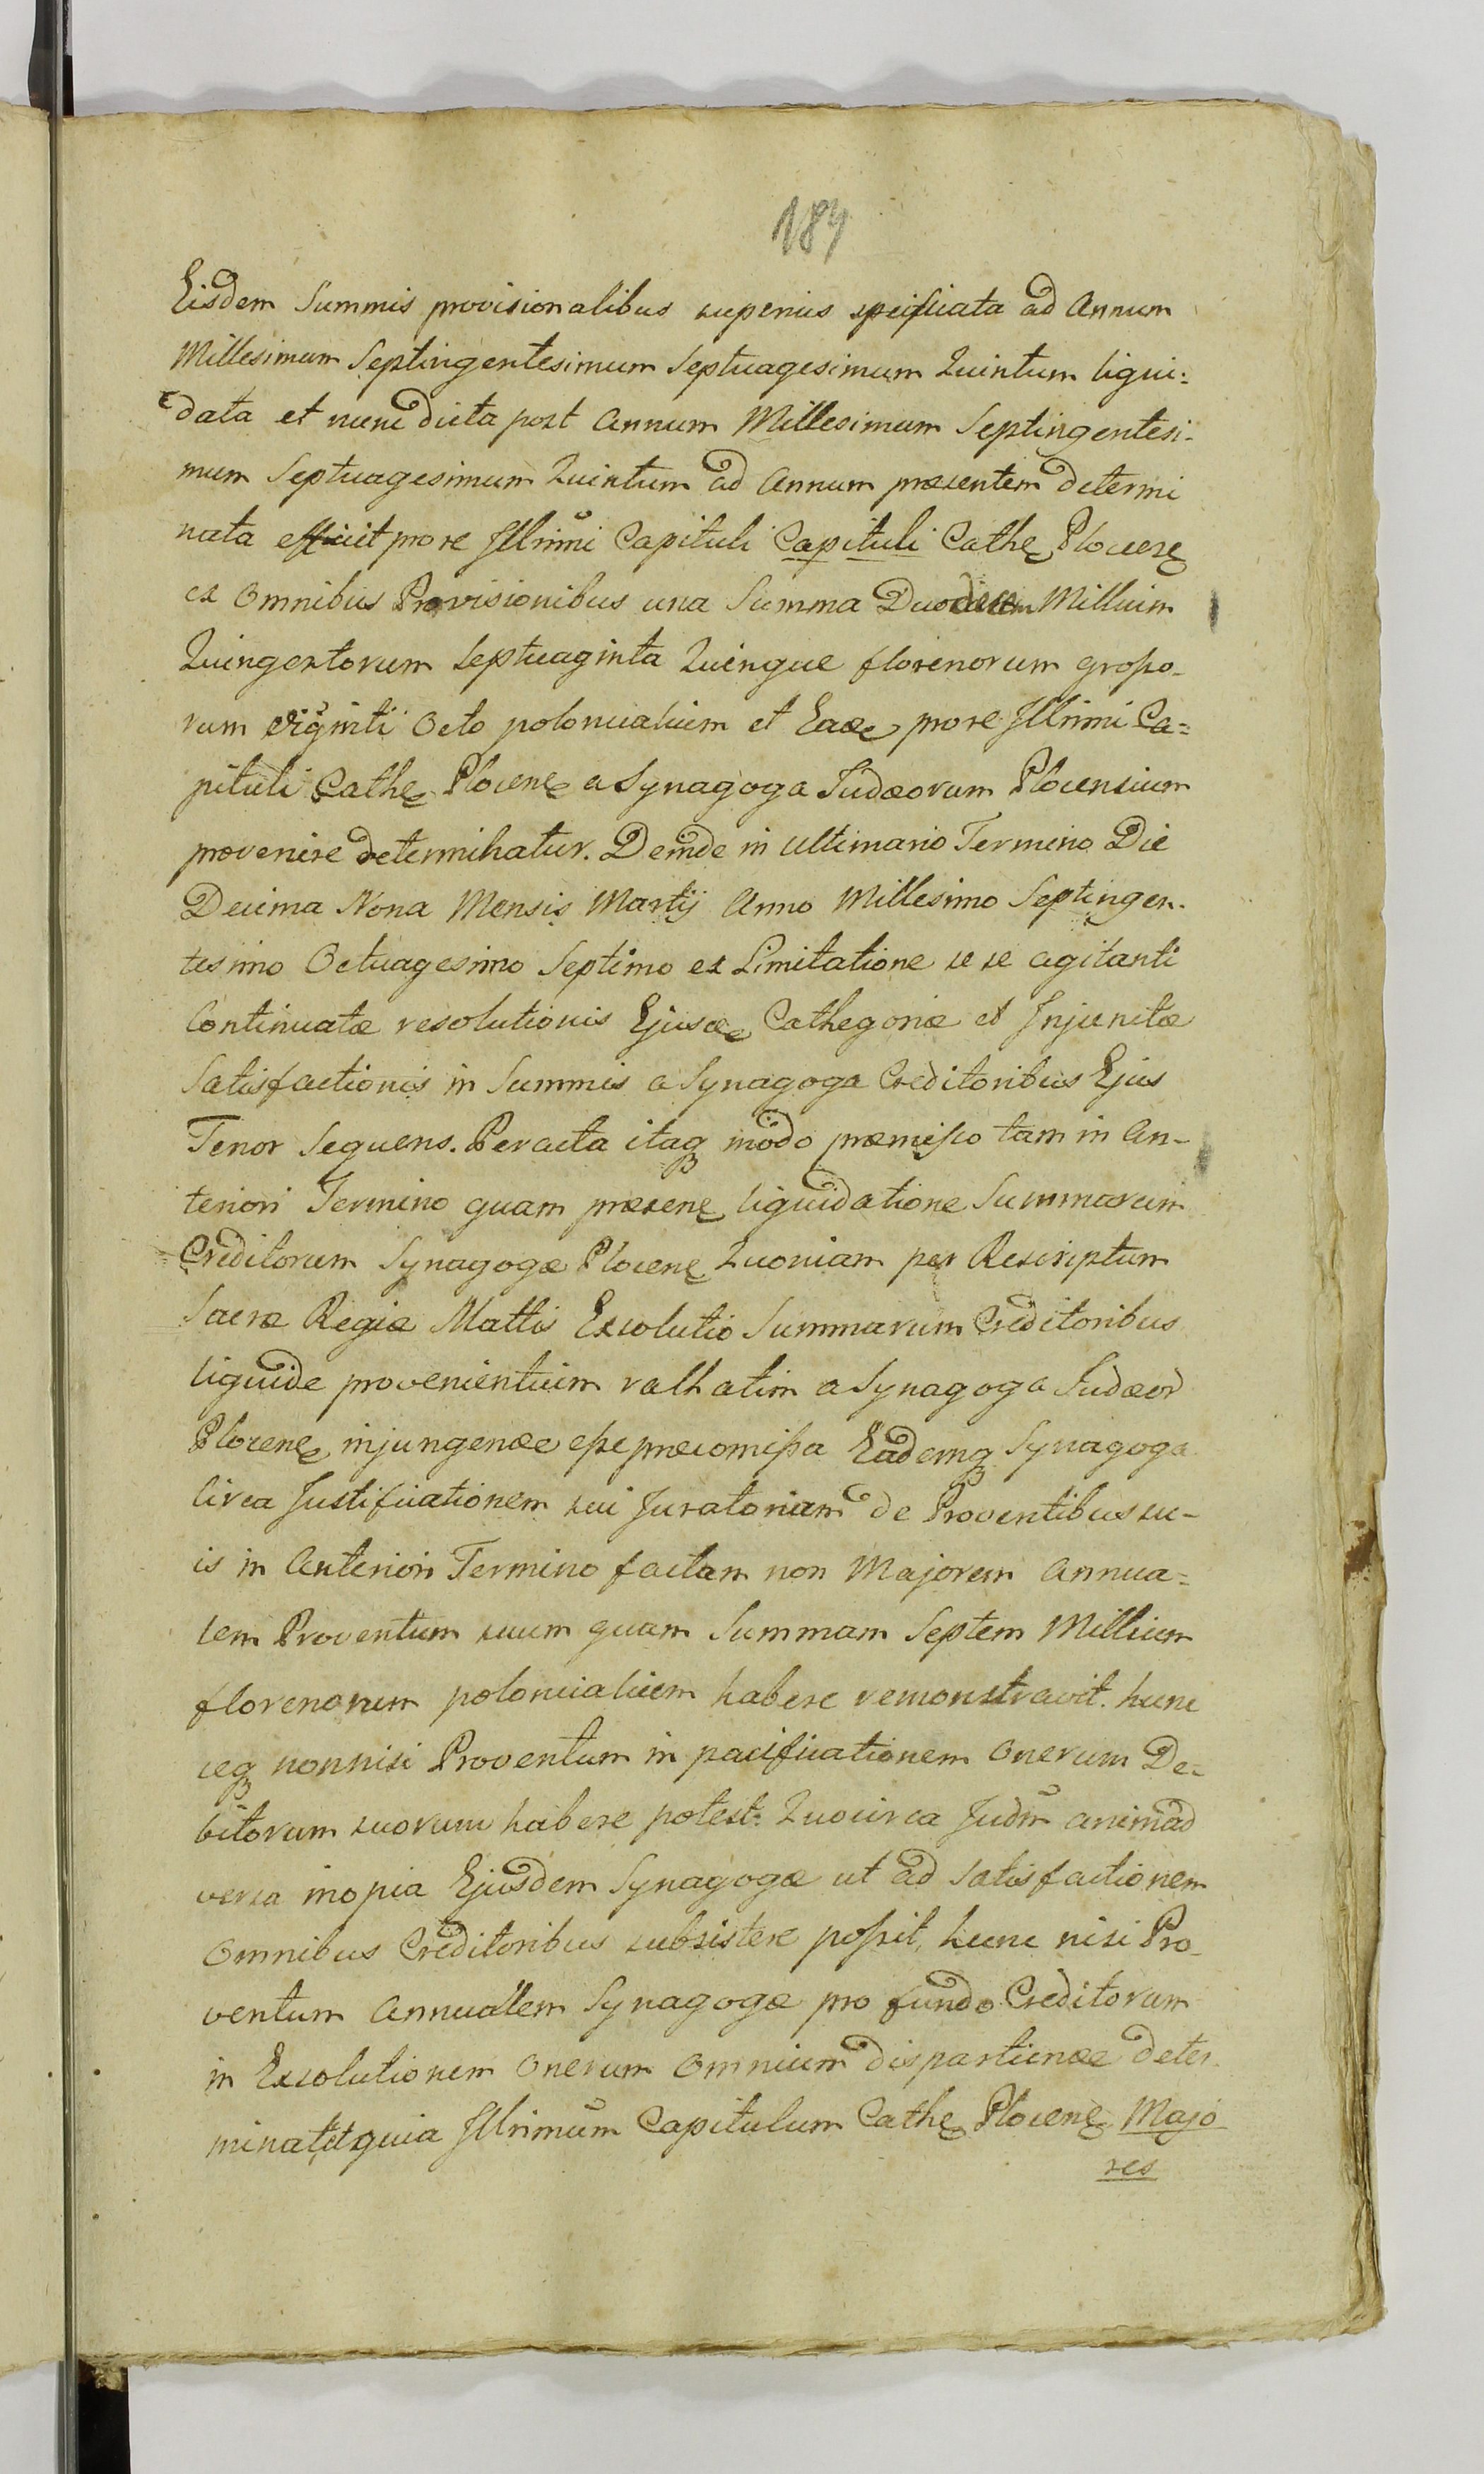 184
Eisdem Summis provisionalibus superius specificata ad Annum
Millesimum Septingentesimum Septuagesimum Quintum liqui=
data et nunc dicta post Annum Millesimum Septingentesi-
mum Septuagesimum Quintum ad Annum præsentem determi
nata efficit pro re Illrimi Capituli Capituli Cathe Plocene
ex Omnibus Provisionibus una Summa Duodecem Millium
Quingentorum Septuaginta Quinque florenorum grosso-
rum Viginti Octo polonicalium et Eade pro re Illrimi Ca=
pituli Cathe Plocene a Synagoga Judæorum Plocensium
provenire determinatur. Deinde in Ultimario Termino Die
Decima Nona Mensis Martij Anno Millesimo Septingen-
tesimo Octuagesimo Septimo ex Limitatione se se agitanti
Continuatæ resolutionis Ejusde Cathegoriæ et Injunctæ
Satisfactionis in Summis a Synagoga Creditoribus Ejus
Tenor Sequens. Peracta itaq modo præmisso tam in An-
teriori Termino quam præsene liquidatione Summarum
Creditorum Synagogæ Plocene Quoniam per Rescriptum
Sacræ Regiæ Mattis Exsolutio Summarum Creditoribus
liquide provenientium rathatim a Synagoga Judæor
Plocene injungende esse præcomissa Eademq Synagoga
circa Justificationem sui Juratoriam de Proventibus su-
is in Anteriori Termino factam non Majorem Annua=
lem Proventum suum quam Summam Septem Millium
florenorum polonicalium habere remonstravit. hunc
ceq nonnisi Proventum in pacificationem Onerum De-
bitorum suorum habere potest: Quocirca Judm animad
versa inopia Ejusdem Synagogæ ut ad Satisfactionem
Omnibus Creditoribus subsistere possit, hunc nisi Pro-
ventum Annualem Synagogæ pro fundo Creditorum
in Exsolutionem Onerum Omnium dispartiende deter
minat et quia Illrimum Capitulum Cathe Plocene Majo
res